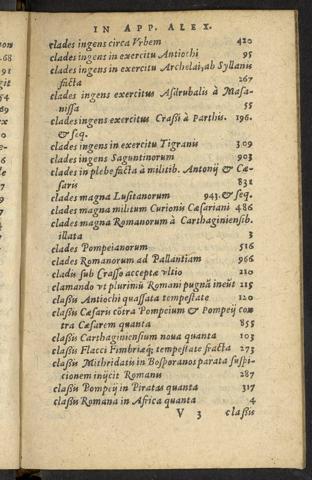 IN APP. ALEX.
clades ingens circa Vrbem 420
clades ingens in exercitu Antiochi 95
clades ingens in exercitu Archelai, ab Syllanis
facta 267
clades ingens exercitus Asdrubalis à Masa-
nissa 55
clades ingens exercitus Crassi à Parthis. 196.
& seq.
clades ingens in exercitu Tigranis 309
clades ingens Saguntinorum 903
clades in plebe facta à militib. Antonij & Cæ-
saris 831
clades magna Lusitanorum 943. & seq.
clades magna militum Curionis Cæsariani 486
clades magna Romanorum à Carthaginiensib.
illata 3
clades Pompeianorum 516
clades Romanorum ad Pallantiam 966
cladis sub Crasso acceptæ vltio 210
clamando vt plurimũ Romani pugnã ineũt 115
classis Antiochi quassata tempestate 120
classis Cæsaris cõtra Pompeium & Pompeij con
tra Cæsarem quanta 855
classis Carthaginiensium noua quanta 103
classis Flacci Fimbriæq; tempestate fracta 273
classis Mithridatis in Bosporanos parata suspi-
cionem inijcit Romanis 287
classis Pompeij in Piratas quanta 317
classis Romana in Africa quanta 4
V 3 classis